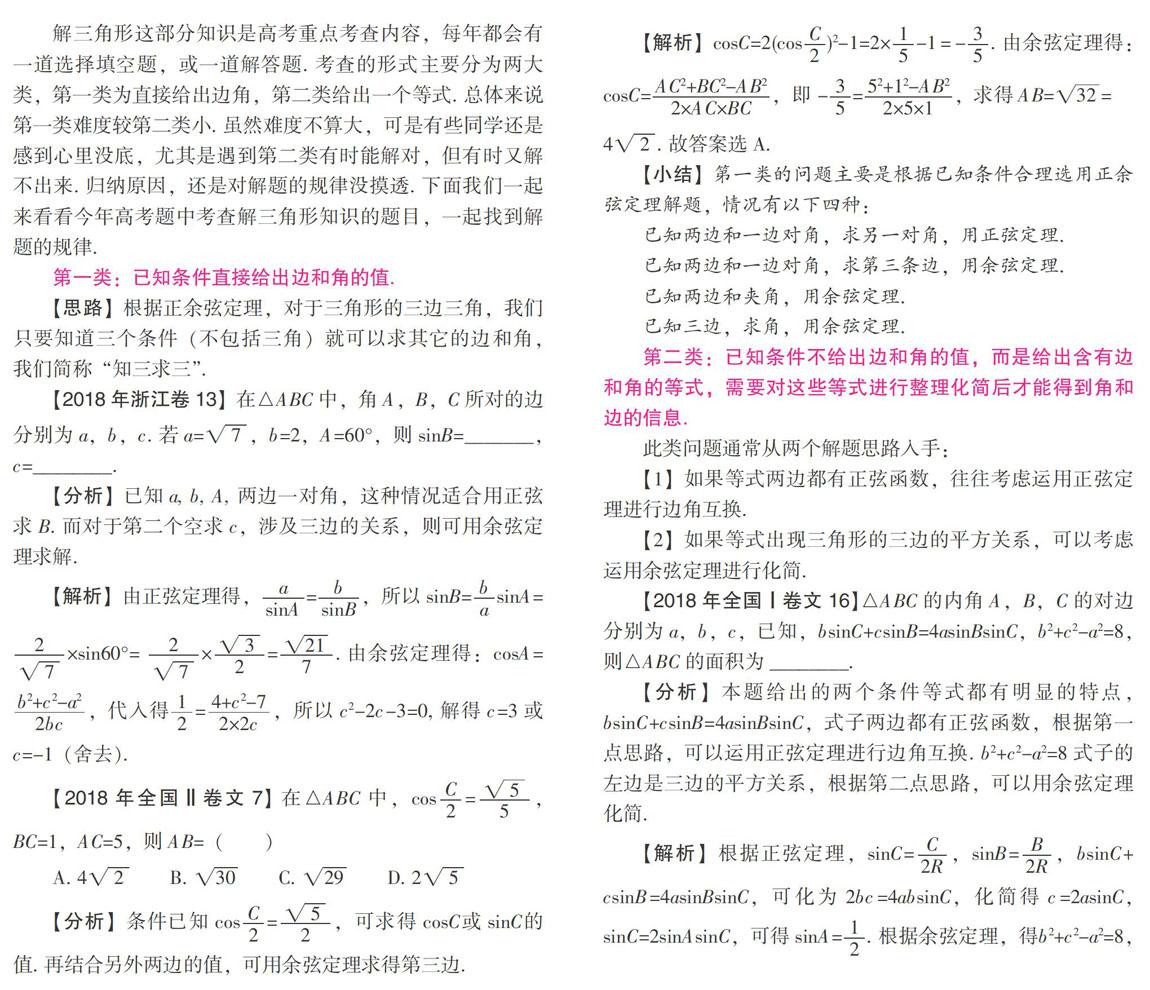 解三角形这部分知识是高考重点考查内容，每年都会有
一道选择填空题，或一道解答题. 考查的形式主要分为两大
类，第一类为直接给出边角，第二类给出一个等式. 总体来说
第一类难度较第二类小. 虽然难度不算大，可是有些同学还是
感到心里没底，尤其是遇到第二类有时能解对，但有时又解
不出来. 归纳原因，还是对解题的规律没摸透. 下面我们一起
来看看今年高考题中考查解三角形知识的题目，一起找到解
题的规律.
第一类：已知条件直接给出边和角的值.
【思路】根据正余弦定理，对于三角形的三边三角，我们
只要知道三个条件（不包括三角）就可以求其它的边和角，
我们简称“知三求三”.
【2018 年浙江卷 13】在△ABC 中，角 A，B，C 所对的边
分别为 a，b，c. 若 a=√7，b=2，A=60°，则 sinB=_______，
c=________.
【分析】已知 a, b, A, 两边一对角，这种情况适合用正弦
求 B. 而对于第二个空求 c，涉及三边的关系，则可用余弦定
理求解.
【解析】由正弦定理得，a/sinA=b/sinB，所以 sinB=b/a sinA=
2/√7×sin60°=2/√7×√3/2=√21/7. 由余弦定理得：cosA=
b²+c²-a²/2bc，代入得1/2=4+c²-7/2×2c，所以 c²-2c-3=0, 解得 c=3 或
c=-1（舍去）.
【2018 年全国Ⅱ卷文 7】在△ABC 中，cos C/2=√5/5，
BC=1，AC=5，则 AB=（　　）
A. 4√2　B. √30　C. √29　D. 2√5
【分析】条件已知 cos C/2=√5/2，可求得 cosC或 sinC的
值. 再结合另外两边的值，可用余弦定理求得第三边.
【解析】cosC=2(cos C/2)²-1=2×1/5-1=-3/5. 由余弦定理得：
cosC=AC²+BC²-AB²/2×AC×BC，即 -3/5=5²+1²-AB²/2×5×1，求得 AB=√32=
4√2. 故答案选 A.
【小结】第一类的问题主要是根据已知条件合理选用正余
弦定理解题，情况有以下四种：
已知两边和一边对角，求另一对角，用正弦定理.
已知两边和一边对角，求第三条边，用余弦定理.
已知两边和夹角，用余弦定理.
已知三边，求角，用余弦定理.
第二类：已知条件不给出边和角的值，而是给出含有边
和角的等式，需要对这些等式进行整理化简后才能得到角和
边的信息.
此类问题通常从两个解题思路入手：
【1】如果等式两边都有正弦函数，往往考虑运用正弦定
理进行边角互换.
【2】如果等式出现三角形的三边的平方关系，可以考虑
运用余弦定理进行化简.
【2018 年全国Ⅰ卷文 16】△ABC 的内角 A，B，C 的对边
分别为 a，b，c，已知，bsinC+csinB=4asinBsinC，b²+c²-a²=8，
则△ABC 的面积为 ________.
【分析】本题给出的两个条件等式都有明显的特点，
bsinC+csinB=4asinBsinC，式子两边都有正弦函数，根据第一
点思路，可以运用正弦定理进行边角互换. b²+c²-a²=8 式子的
左边是三边的平方关系，根据第二点思路，可以用余弦定理
化简.
【解析】根据正弦定理，sinC=C/2R，sinB=B/2R，bsinC+
csinB=4asinBsinC，可化为 2bc=4absinC，化简得 c=2asinC，
sinC=2sinAsinC，可得 sinA=1/2. 根据余弦定理，得b²+c²-a²=8，